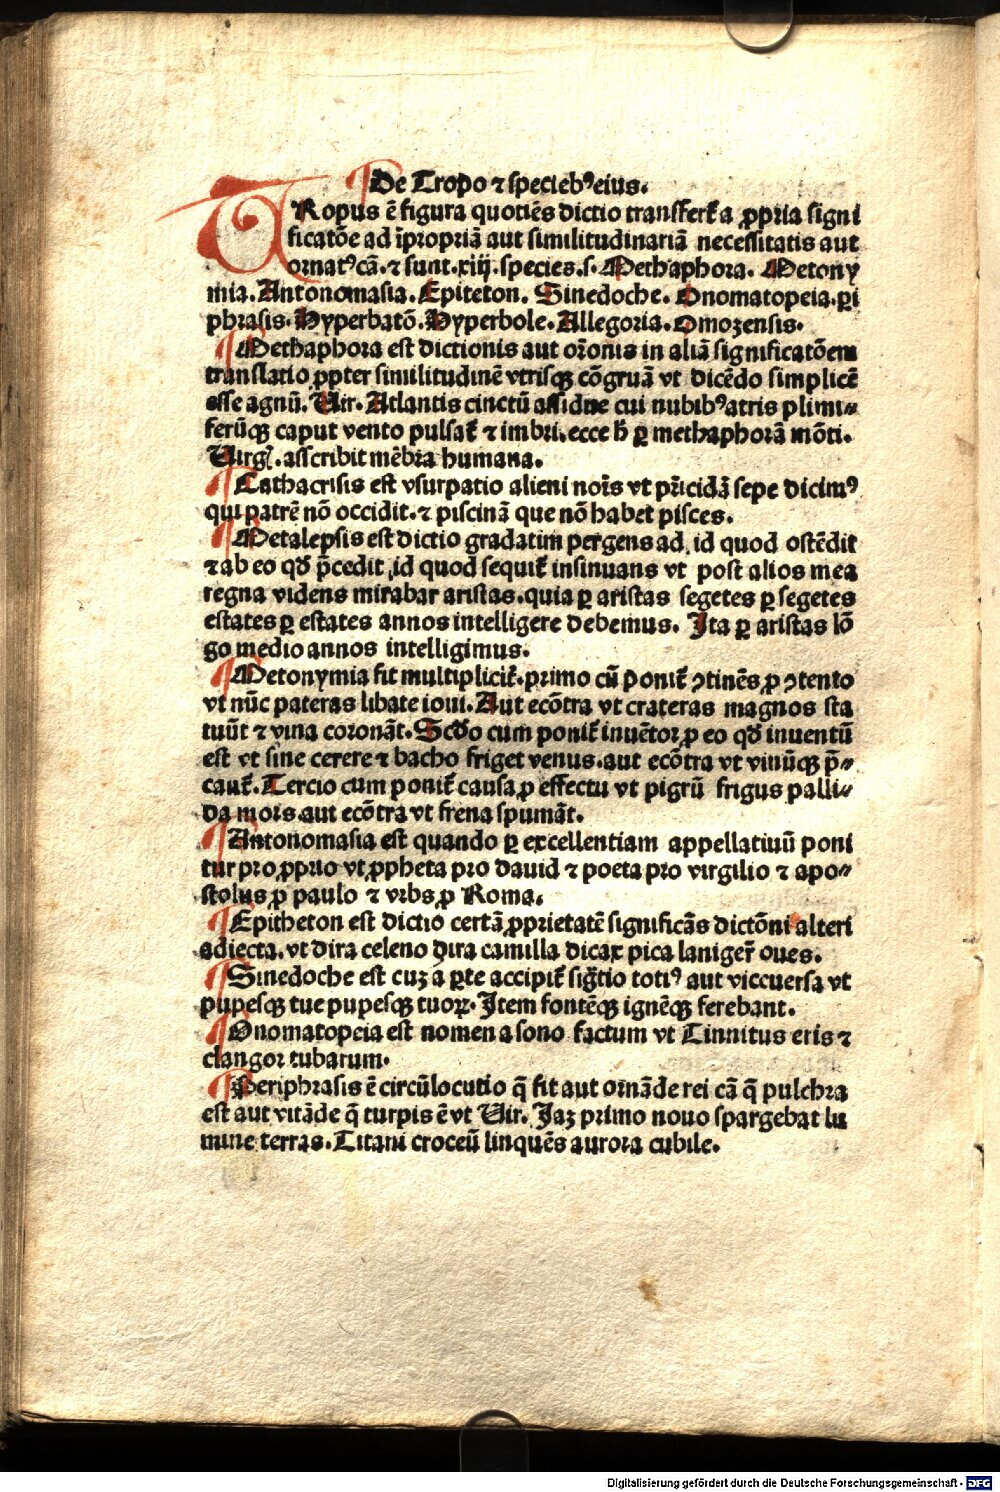 De Tropo ⁊ specieb⁹ eius.
TRopus ē figura quotiēs dictio transfert᷑ a ꝓpria signi
ficatōe ad īpropriā aut similitudinariā necessitatis aut
ornat⁹ cā. ⁊ sunt .xiij. species .s. Methaphora. Metony
mia. Antonomasia. Epiteton. Sinedoche. Onomatopeia. ꝑi
phrasis. Hyperbatō. Hyperbole. Allegoria. Omozensis.
Methaphora est dictionis aut orōnis in aliā significatōem
translatio ꝓpter similitudinē vtrisqꝫ cōgruā vt dicēdo simplicē
esse agnū. Uir. Atlantis cinctū assidue cui nubib⁹ atris plimi⸗
ferūqꝫ caput vento pulsat᷑ ⁊ imbri. ecce h̄ ꝑ methaphorā mōti.
Uirgꝉ. asscribit mēbra humana.
Cathacrisis est vsurpatio alieni nois̄ vt pricidā sepe dicim⁹
qui patrē nō occidit. ⁊ piscinā que nō habet pisces.
Metalepsis est dictio gradatim pergens ad id quod ostēdit
⁊ ab eo qd̄ p̄cedit id quod sequit᷑ insinuans vt post alios mea
regna videns mirabar aristas. quia ꝑ aristas segetes ꝑ segetes
estates ꝑ estates annos intelligere debemus. Ita ꝑ aristas lō
go medio annos intelligimus.
Metonymia fit multiplicit᷑. primo cū ponit᷑ ꝯtinēs ꝓ ꝯtento
vt nūc pateras libate ioui. Aut ecōtra vt crateras magnos sta
tuūt ⁊ vina coronāt. Scd̄o cum ponit᷑ inuētor ꝓ eo qd̄ inuentū
est vt sine cerere ⁊ bacho friget venus. aut ecōtra vt vinūqꝫ p̄⸗
cant᷑. Tercio cum ponit᷑ causa ꝓ effectu vt pigrū frigus palli⸗
da mors. aut ecōtra vt frena spumāt.
Antonomasia est quando ꝑ excellentiam appellatiuū poni
tur pro ꝓprio vt ꝓpheta pro dauid ⁊ poeta pro virgilio ⁊ apo⸗
stolus ꝓ paulo ⁊ vrbs ꝓ Roma.
Epitheton est dictio certā ꝓprietatē significās dictōni alteri
adiecta. vt dira celeno dira camilla dicax pica laniger᷑ oues.
Sinedoche est cuz a ꝑte accipit᷑ sigtio toti⁹ aut viccuersa vt
pupesqꝫ tue pupesqꝫ tuoꝝ. Item fontēqꝫ ignēqꝫ ferebant.
Onomatopeia est nomen a sono factum vt Tinnitus eris ⁊
clangor tubarum.
Periphrasis ē circūlocutio q̄ fit aut ornāde rei cā q̄ pulchra
est aut vitāde q̄ turpis ē vt Uir. Jaz primo nouo spargebat lu
mine terras. Titani croceū linquēs aurora cubile.
Digitalisierung gefördert durch die Deutsche Forschungsgemeinschaft - DFG